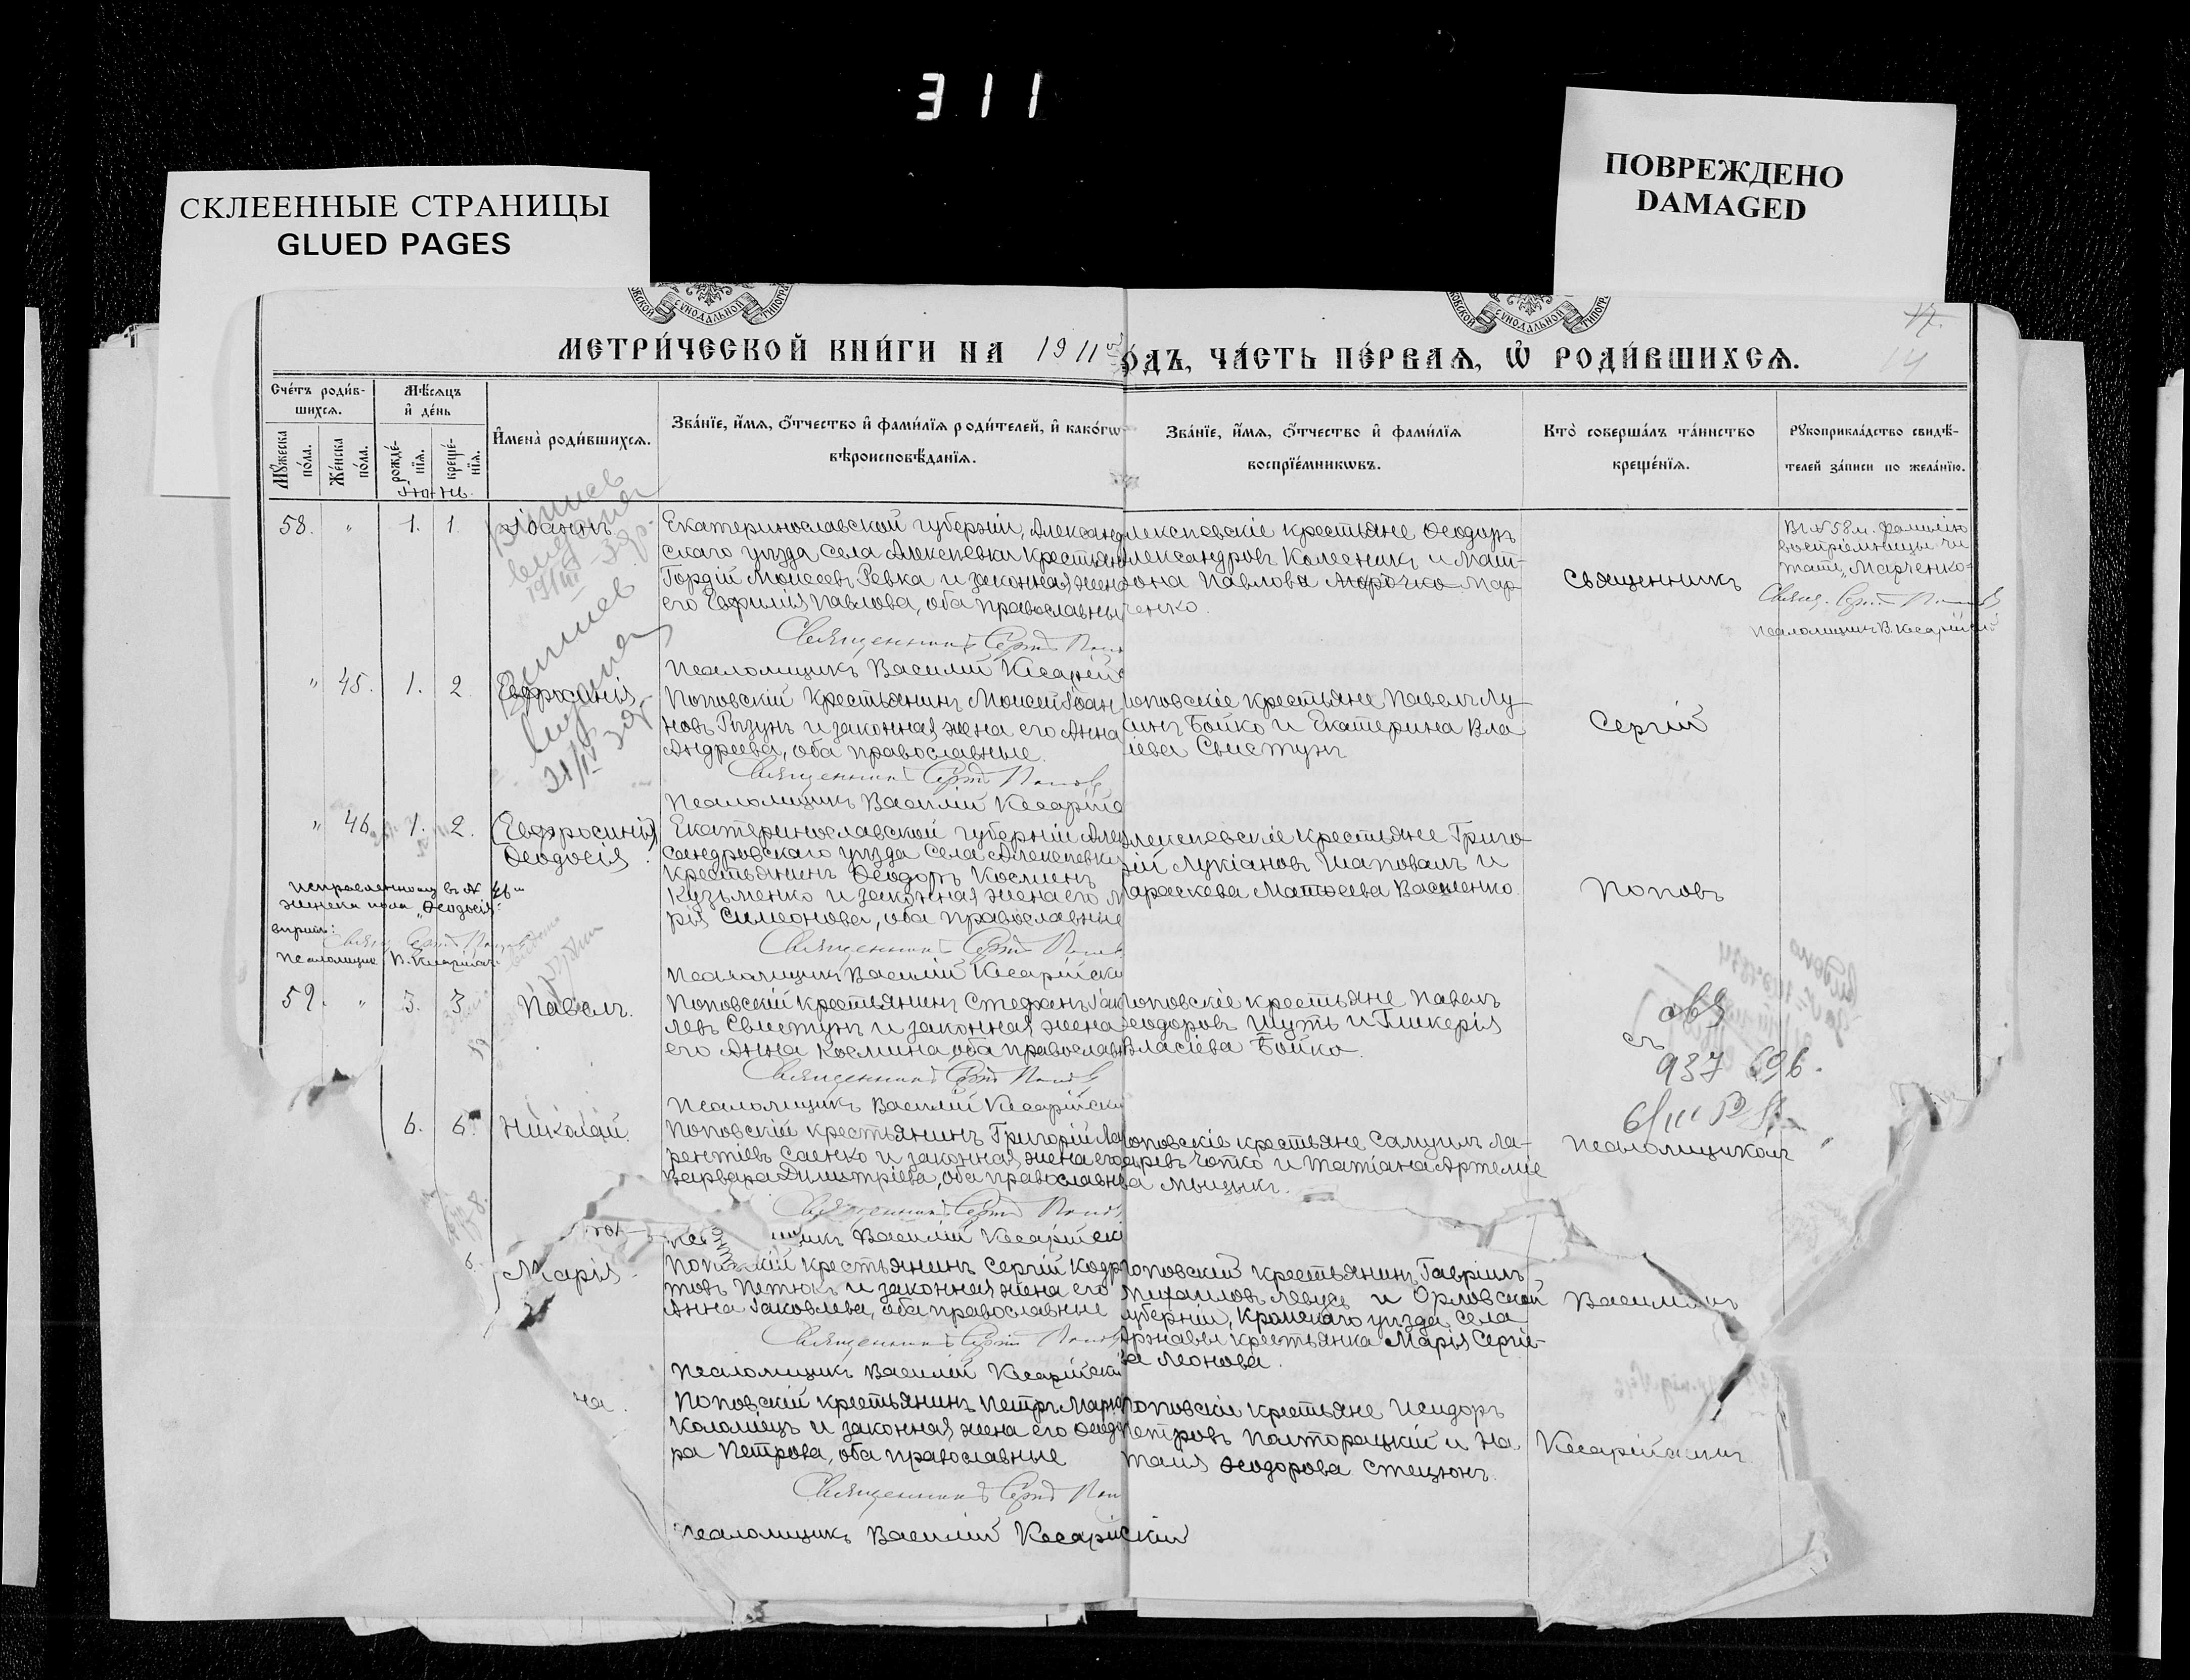 311
СКЛЕЕННЫЕ СТРАНИЦЫ
GLUED PAGES
ПОВРЕЖДЕНО
DAMAGED
МЕТРИ́ЧЕСКОЙ КНИ́ГИ НА 1911 го́дъ, ЧА́СТЬ ПЕ́РВАѦ, Ѡ҆ РОДИ́ВШИХСѦ.
14
Сче́тъ роди́в-
шихсѧ.
Мѣ́сѧцъ
и҆ де́нь
Мꙋ́жеска
по́ла.
Же́нска
по́ла.
рожде́-
нїѧ.
креще́-
нїѧ.
И҆мена̀ роди́вшихсѧ.
Зва́нїе, и҆́мѧ, ѻ҆́тчество и҆ фами́лїѧ роди́телей, и҆ како́гѡ
вѣроисповѣ́данїѧ.
Зва́нїе, и҆́мѧ, ѻ҆́тчество и҆ фами́лїѧ
воспрїе́мникѡвъ.
Кто̀ соверша́лъ та́инство
креще́нїѧ.
Рꙋкоприкла́дство свидѣ́-
телей за́писи по жела́нїю.
Іюнь
58. " 1. 1. Іоаннъ
Екатеринославской губерніи, Александ
скаго уѣзда села Алексѣевки крестьян
Гордій Моисеевъ Ревка и законная жена
его Евфимія Павлова, оба православны
Священникъ Сергій Попо
Псаломщикъ Василій Кесарій
лексѣевскіе крестьяне Ѳеодоръ
лександровъ Колесникъ и Мат-
рона Павлова Марочко Мар
ченко.
Священникъ
Въ № 58 м. фамилію
воспріемницы чи
тать "Марченко"
Свящ. Сергій Поповъ
Псаломщикъ В. Кесарійскій
" 45. 1. 2. Евфросинія
Поповскій крестьянинъ Моисей Іоан
новъ Рѣзунъ и законная жена его Анна
Андреева, оба православные.
Священникъ Сергій Поповъ
Псаломщикъ Василій Кесарійс
поповскіе крестьяне Павелъ Лу
кинъ Бойко и Екатерина Вла
сіева Свистунъ
Сергій
" 46. 1. 2. (Евфросинія)
Ѳеодосія
Екатеринославской губерніи Алек
сандровскаго уѣзда села Алексѣевки
крестьянинъ Ѳеодоръ Косминъ
Кузьменко и законная жена его М
рія Симеонова, оба православные
Священникъ Сергій Попов
Псаломщикъ Василій Кесарійски
лексѣевскіе крестьяне Григо
рій Лукіановъ Шаповалъ и
Параскева Матѳеева Васченко.
Поповъ
Исправленному въ № 46м
женска пола "Ѳеодосія"
вѣрить:
Свящ. Сергій Поповъ
Псаломщикъ В. Кесарійскій
59. " 3. 3. Павелъ.
Поповскій крестьянинъ Стефанъ Іак
левъ Свистунъ и законная жена
его Анна Космина, оба православ
Священникъ Сергій Поповъ
Псаломщикъ Василій Кесарійски
Поповскіе крестьяне Павелъ
Ѳеодоровъ Шуть и Гликерія
Власіева Бойко.
съ
937 696.
6. 6. Николай.
Поповскій крестьянинъ Григорій Лав
рентіевъ Саенко и законная жена его
Варвара Димитріева, оба православн
Священникъ Сергій Попов
икъ Василій Кесарійскі
оповскіе крестьяне Самуилъ Ла-
аревъ Чопко и Татіана Артеміе
ва Мыцыкъ.
псаломщикомъ
6. Марія.
Поповскій крестьянинъ Сергій Кодр
товъ Петюкъ и законная жена его
Анна Іаковлева, оба православные
Священникъ Сергій Попов
Псаломщикъ Василій Кесарійски
Поповскій крестьянинъ Гавріилъ
Михаиловъ Левусь и Орловской
губерніи, Кромскаго уѣзда, села
Аржавы крестьянка Марія Сергіе-
ва Леонова.
Василіемъ
на.
Поповскій крестьянинъ Петръ Марко
Коломіецъ и законная жена его Ѳеодо
ра Петрова, оба православные
Священникъ Сергій Поп
Псаломщикъ Василій Кесарійскій
Поповскіе крестьяне Исидоръ
Петровъ Полторацкій и На
талія Ѳеодорова Стецюнъ.
Кесарійскимъ